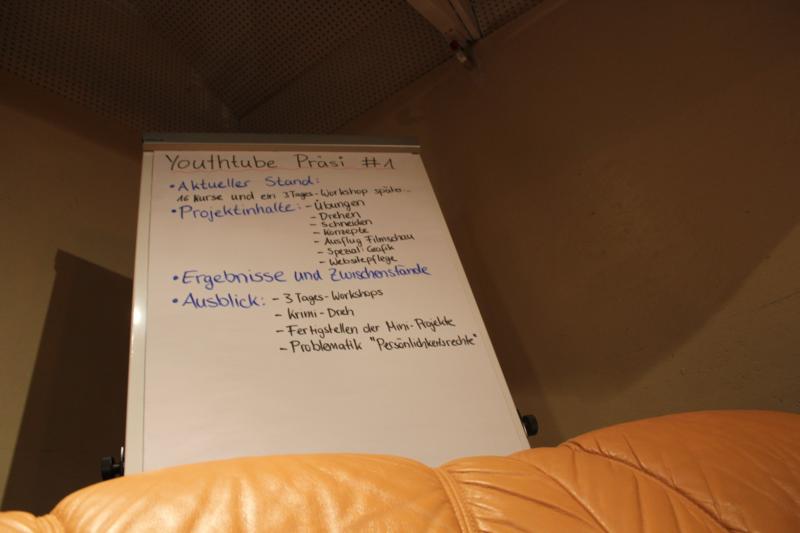 Youthtube Präsi #1
• Aktueller Stand:
16 Kurse und ein 3Tages-Workshop später...
• Projektinhalte: - Übungen
- Drehen
- Schneiden
- Konzepte
- Ausflug Filmschau
- Spezial: Grafik
- Websitepflege
• Ergebnisse und Zwischenstände
• Ausblick: - 3Tages-Workshops
- Krimi-Dreh
- Fertigstellen der Mini-Projekte
- Problematik "Persönlichkeitsrechte"